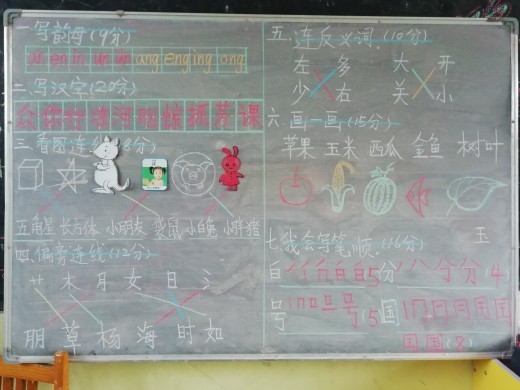 一.写韵母(9分)
an en in un ün ang eng ing ong
二.写汉字(20分)
三.看图连线(8分)
五角星 长方体 小朋友 袋鼠 小白兔 小胖猪
四.偏旁连线(12分)
艹 木 月 女 日 氵
朋 草 杨 海 时 如
五.连反义词.(10分)
左 多 大 开
少 右 关 小
六.画一画(15分)
苹果 玉米 西瓜 金鱼 树叶
七.我会写笔顺.(16分) 玉
白 5分 分 (4)
号 5 国
国国(8)